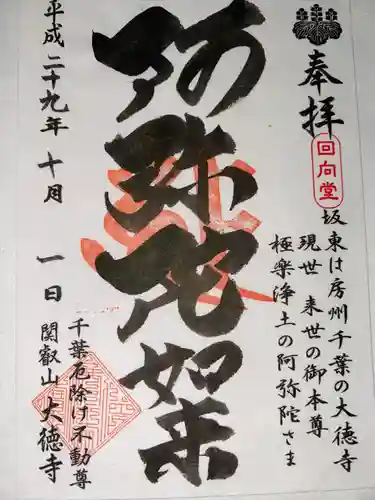 奉拝
回向堂
坂東は房州千葉の大徳寺
現世 来世の御本尊
極楽浄土の阿弥陀さま
阿弥陀如来
千葉厄除け不動尊
関叡山 大徳寺
平成二十九年 十月 一日